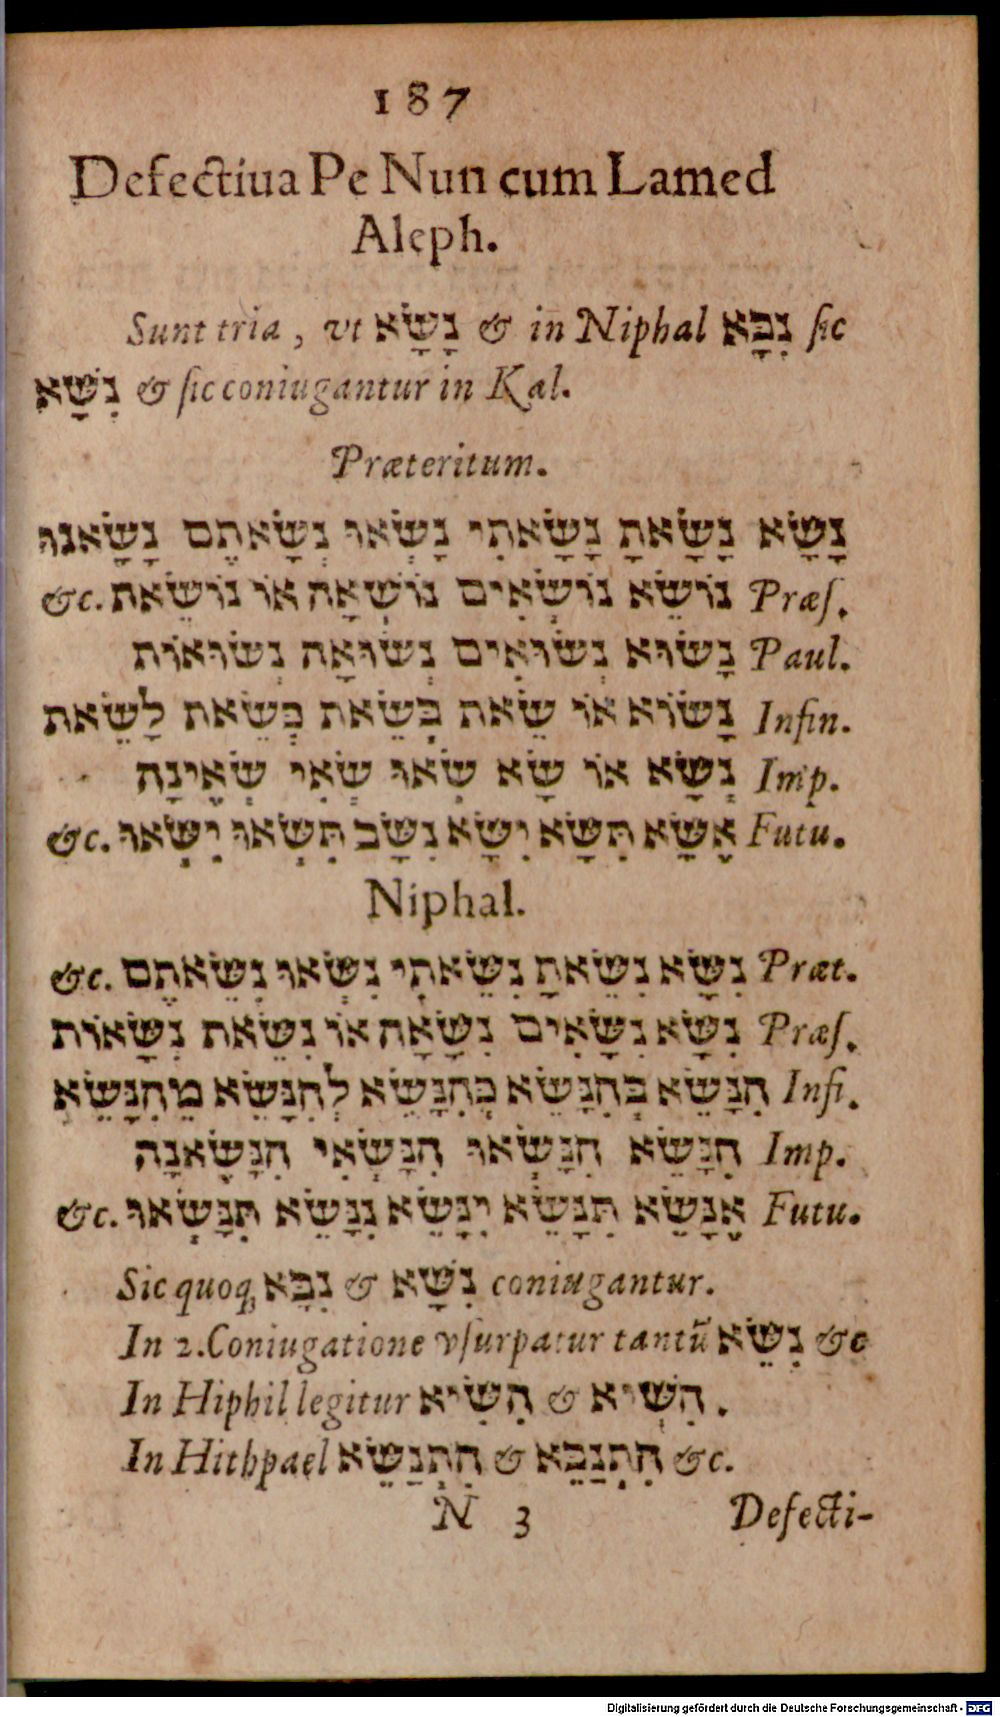 187
Defectiua Pe Nun cum Lamed
Aleph.
Sunt tria, vt נָשָׂא & in Niphal נִבָּא ſic
נִשָּׁא & ſic coniugantur in Kal.
Præteritum.
נָשָׂא נָשָׂאתָ נָשָׂאתִי נָשְׂאוּ נְשָׂאתֶם נָשָׂאנוּ
Præſ. נוֹשֵׂא נוֹשְׂאִים נוֹשְׂאָה אוֹ נוֹשֵׂאת &c.
Paul. נָשׂוּא נְשׂוּאִים נְשׂוּאָה נְשׂוּאוֹת
Infin. נָשׂוֹא אוֹ שֵׂאת בְּשֵׂאת כְּשֵׂאת לָשֵׂאת
Imp. נְשָׂא אוֹ שָׂא שְׂאוּ שְׂאִי שְׂאֶינָה
Futu. אֶשָּׂא תִּשָּׂא יִשָּׂא נִשָּׂב תִּשְׂאוּ יִשְׂאוּ &c.
Niphal.
Præt. נִשָּׂא נִשֵּׂאתָ נִשֵּׂאתִי נִשְּׂאוּ נִשֵּׂאתֶם &c.
Præſ. נִשָּׂא נִשָּׂאִים נִשָּׂאָה אוֹ נִשֵּׂאת נִשָּׂאוֹת
Infi. הִנָּשֵׂא בְּהִנָּשֵׂא כְּהִנָּשֵׂא לְהִנָּשֵׂא מֵהִנָּשֵׂא
Imp. הִנָּשֵׂא הִנָּשְׂאוּ הִנָּשְׂאִי הִנָּשֶׂאנָה
Futu. אֶנָּשֵׂא תִּנָּשֵׂא יִנָּשֵׂא נִנָּשֵׂא תִּנָּשְׂאוּ &c.
Sic quoq; נִבָּא & נִשָּׁא coniugantur.
In 2. Coniugatione vſurpatur tantũ נִשֵּׂא &c
In Hiphil legitur הִשִּׂיא & הִשִּׁיא.
In Hithpael הִתְנַשֵּׂא & הִתְנַבֵּא &c.
N 3 Defecti-
Digitalisierung gefördert durch die Deutsche Forschungsgemeinschaft - DFG